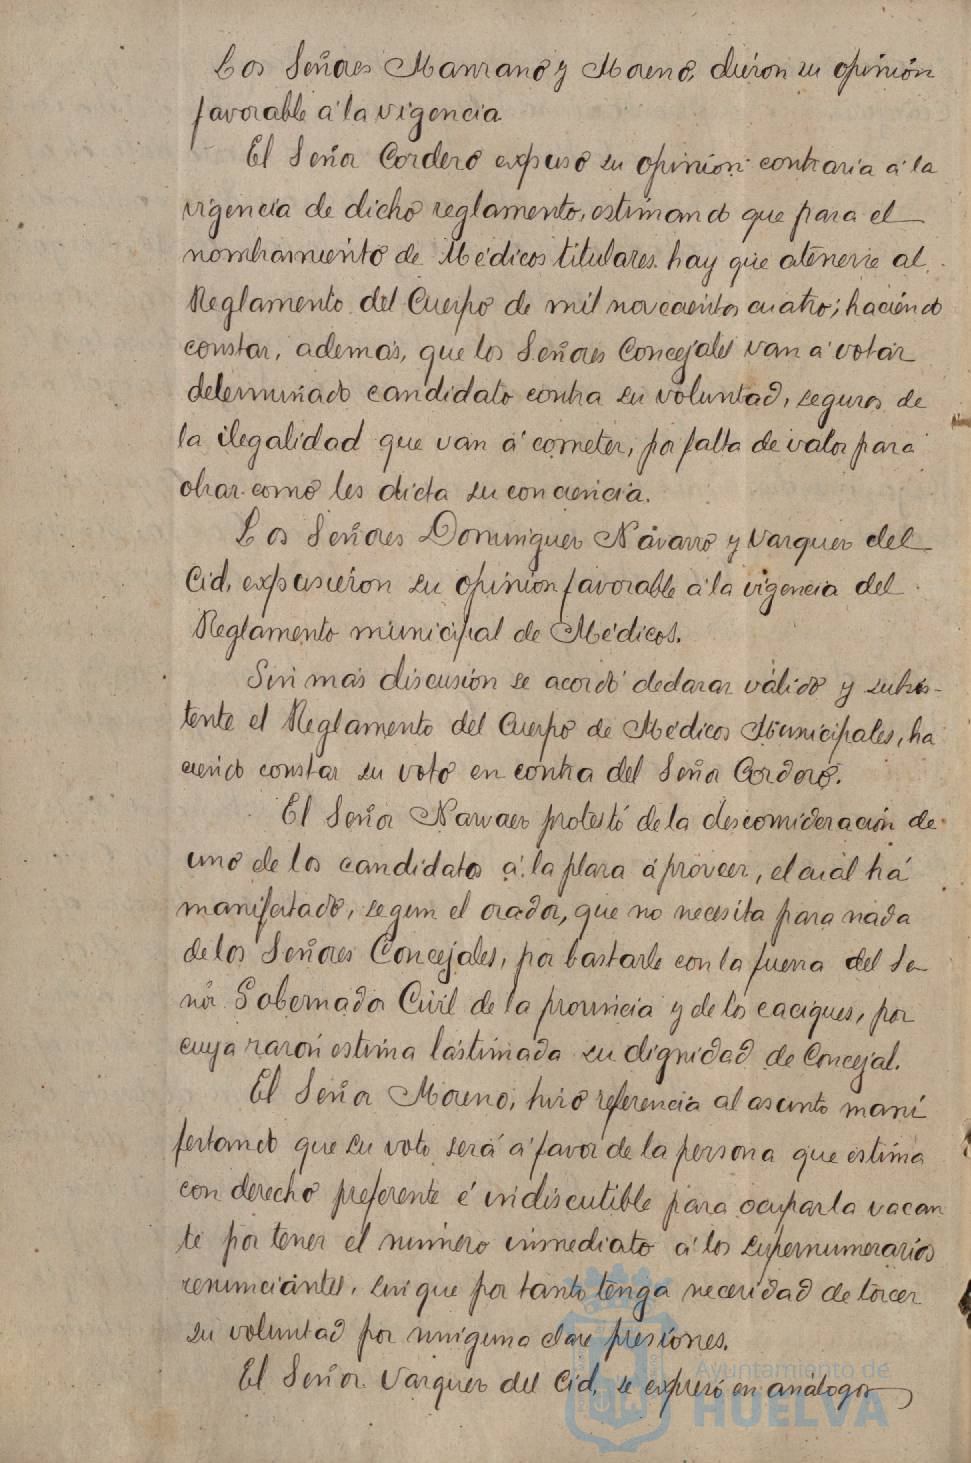 Los Señores Manzano y Moreno, dieron su opinión
favorable á la vigencia.
El Señor Cordero expuso su opinión contraria á la
vigencia de dicho reglamento, estimando que para el
nombramiento de Médicos titulares hay que atenerse al
Reglamento del Cuerpo de mil novecientos cuatro; haciendo
constar, además, que los Señores Concejales van á votar
determinado candidato contra su voluntad, seguros de
la ilegalidad que van á cometer, por falta de valor para
obrar como les dicta su conciencia.
Los Señores Dominguez Návarro y Vazquez del
Cid, expusieron su opinión favorable á la vigencia del
Reglamento municipal de Médicos.
Sin más discusión se acordó declarar válido y subsis-
tente el Reglamento del Cuerpo de Médicos Municipales, ha
ciendo constar su voto en contra del Señor Cordero.
El Señor Narvaez protestó de la desconsideración de
uno de los candidatos á la plaza á proveer, el cual há
manifestado, segun el orador, que no necesita para nada
de los Señores Concejales, por bastarle con la fuerza del Se-
ñor Gobernador Civil de la provincia y de los caciques, por
cuya razón estima lastimada su dignidad de Concejal.
El Señor Moreno, hizo referencia al asunto mani
festando que su voto será á favor de la persona que estima
con derecho preferente é indiscutible para ocupar la vacan
te por tener el número inmediato á los supernumerarios
renunciantes, sin que por tanto tenga necesidad de torcer
su voluntad por ninguna clase presiones.
El Señor Vazquez del Cid, se expresó en análogos
Ayuntamiento de
HUELVA